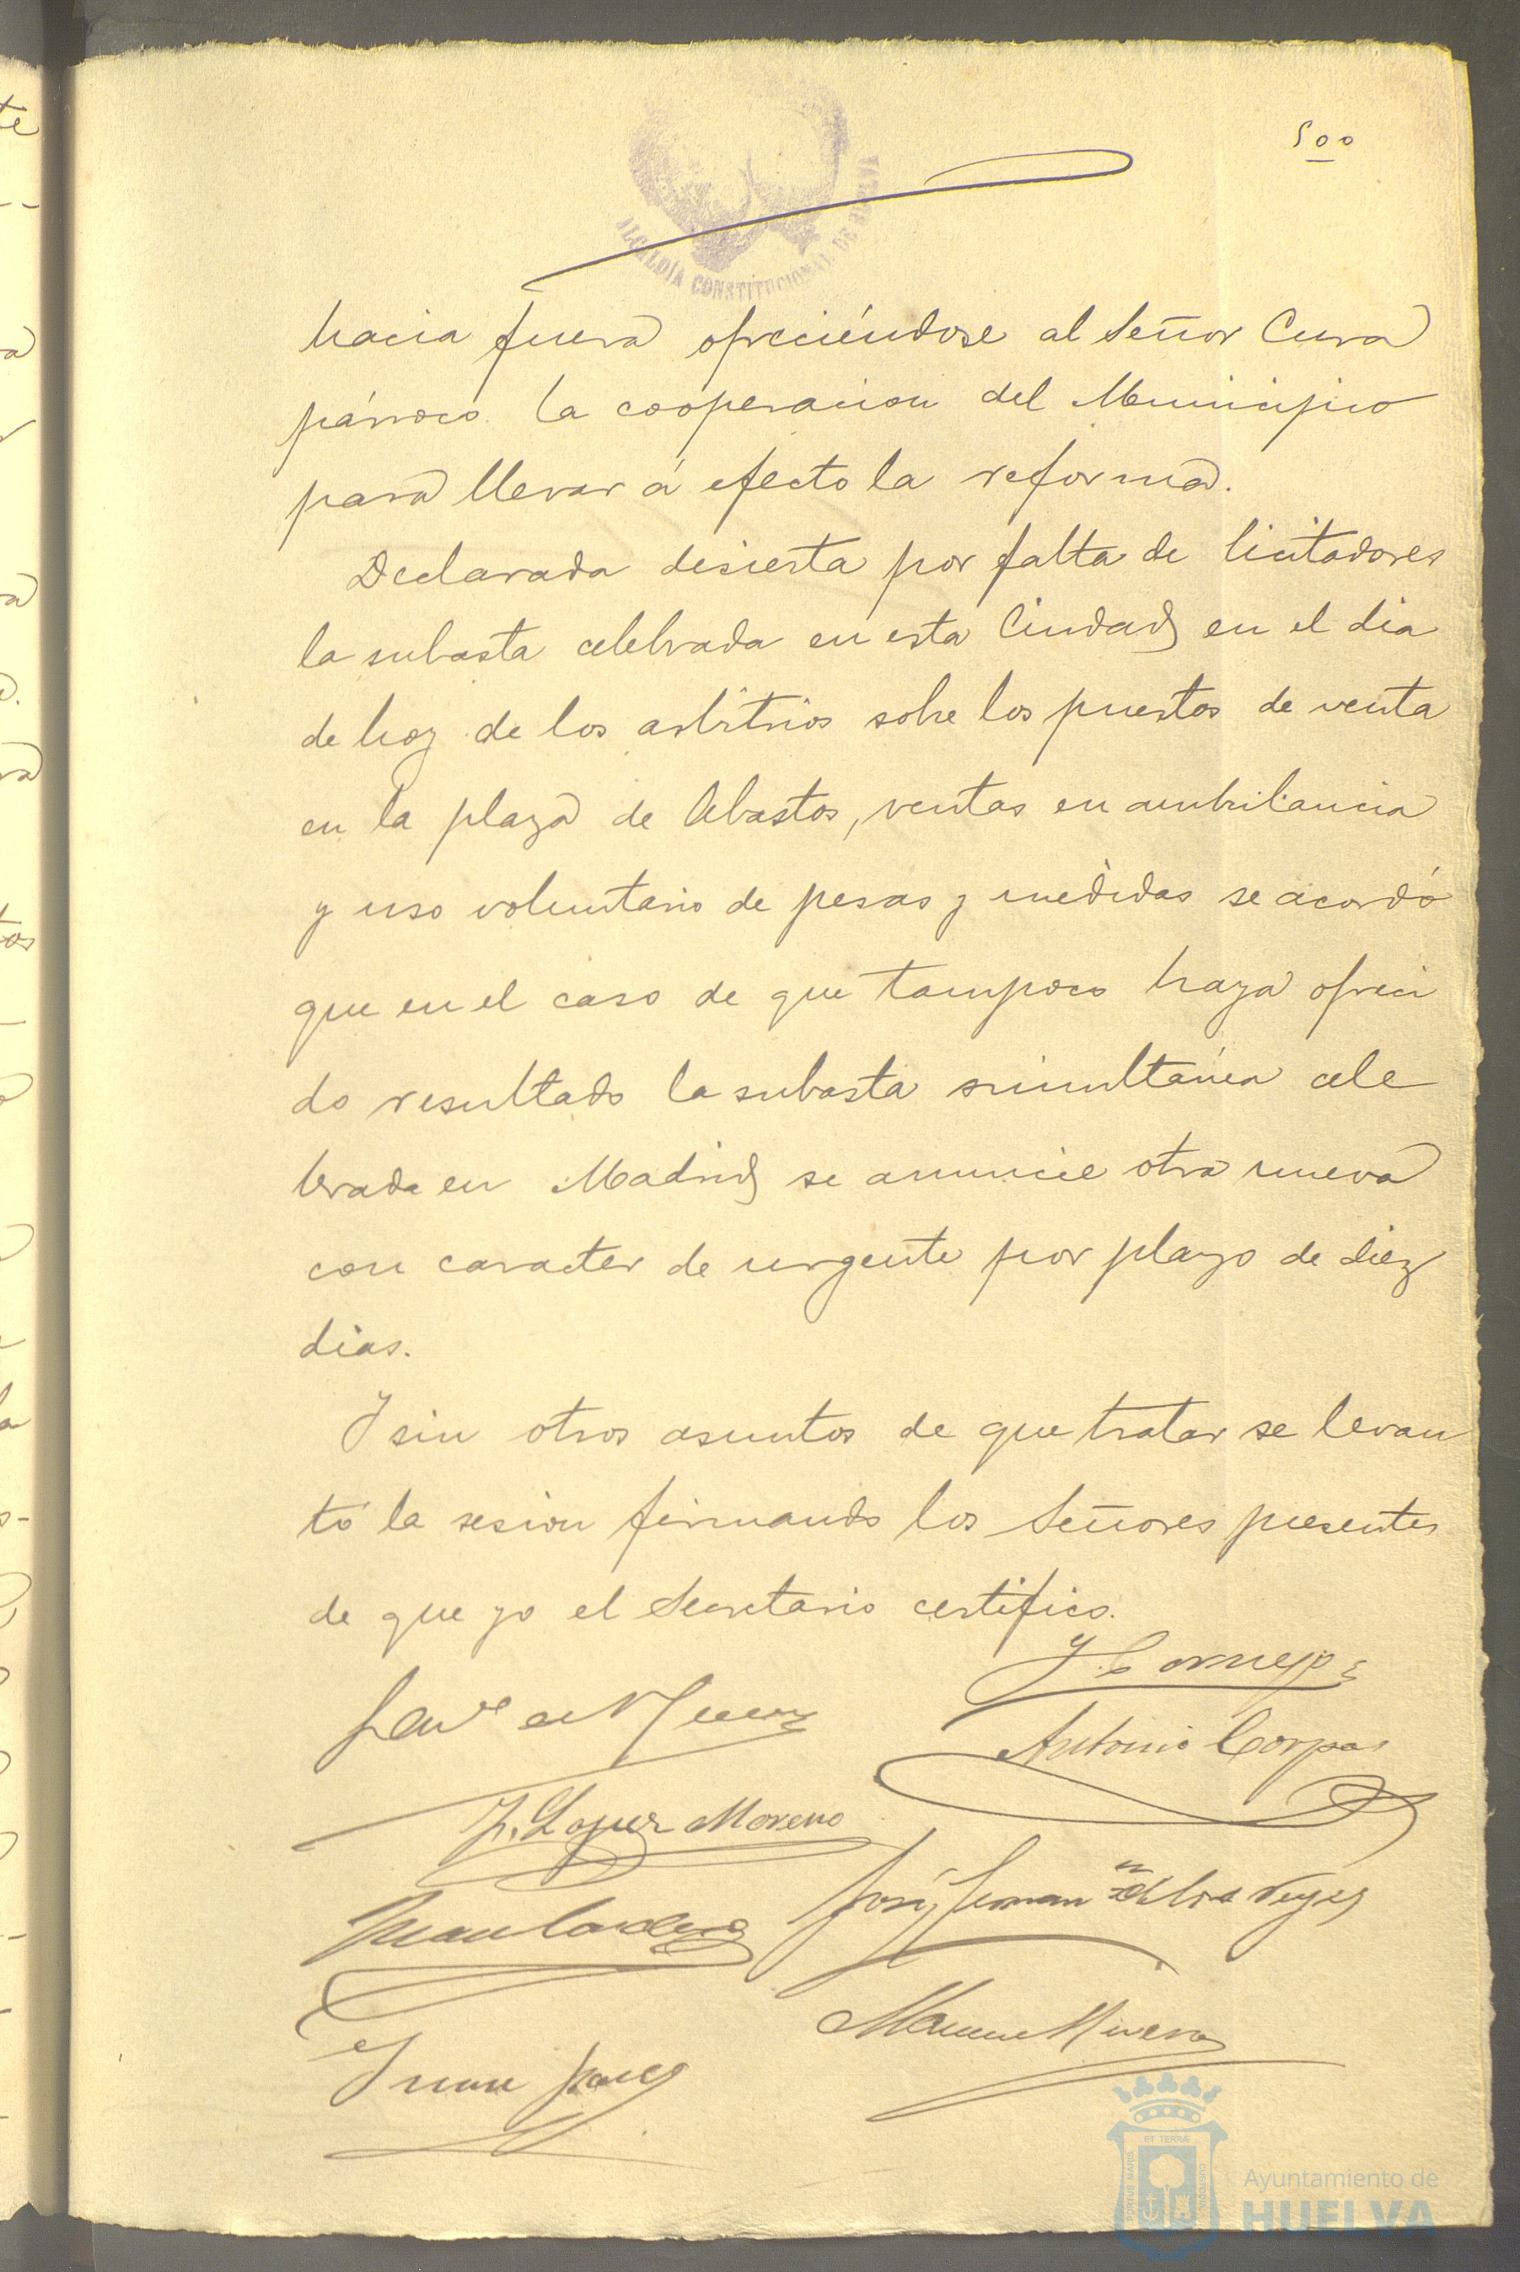 500
ALCALDÍA CONSTITUCIONAL DE HUELVA
hacia fuera ofreciéndose al Señor Cura
párroco la cooperacion del Municipio
para llevar á efecto la reforma.
Declarada desierta por falta de licitadores
la subasta celebrada en esta Ciudad en el dia
de hoy de los arbitrios sobre los puestos de venta
en la plaza de Abastos, ventas en ambulancia
y uso voluntario de pesas y medidas se acordó
que en el caso de que tampoco haya ofreci
do resultado la subasta simultánea cele
brada en Madrid se anuncie otra nueva
con caracter de urgente por plazo de diez
dias.
Y sin otros asuntos de que tratar se levan
tó la sesion firmando los Señores presentes
de que yo el Secretario certifico.
Y Cornejo
Antonio Corpas
J. Lopez Moreno
José Roman de los Reyes
Juan Cordero
Manuel Rivera
Juan
ET TERRÆ
PORTUS MARIS
CUSTODIA
Ayuntamiento de
HUELVA